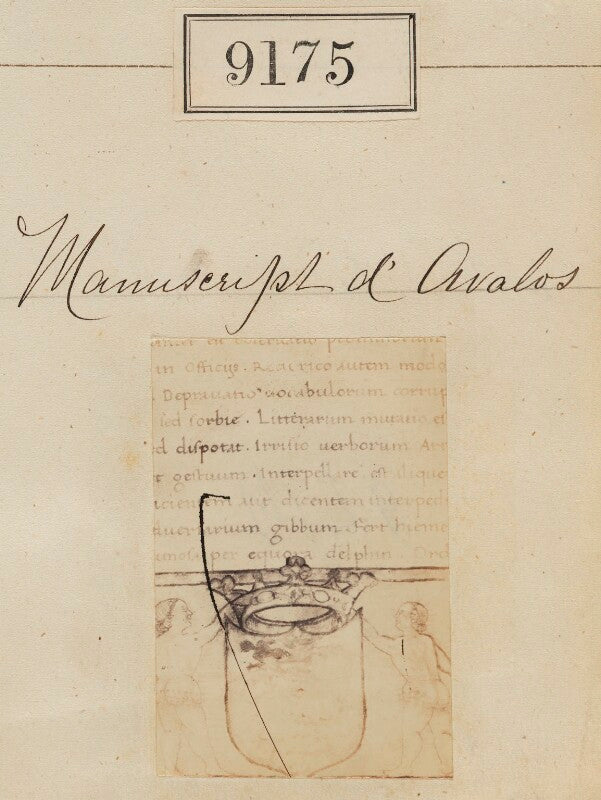 9175
Manuscript d' Avalos
in Officijs . Rea rico autem modo
Depravatio vocabulorum corrup
sed sorbie . Litterarum mutatio et
d dispotat . Irrisio uerborum
t gestuum . Interpellare est
aut dicentem interpell
gibbum Fert hieme
per equora delphin . Ord